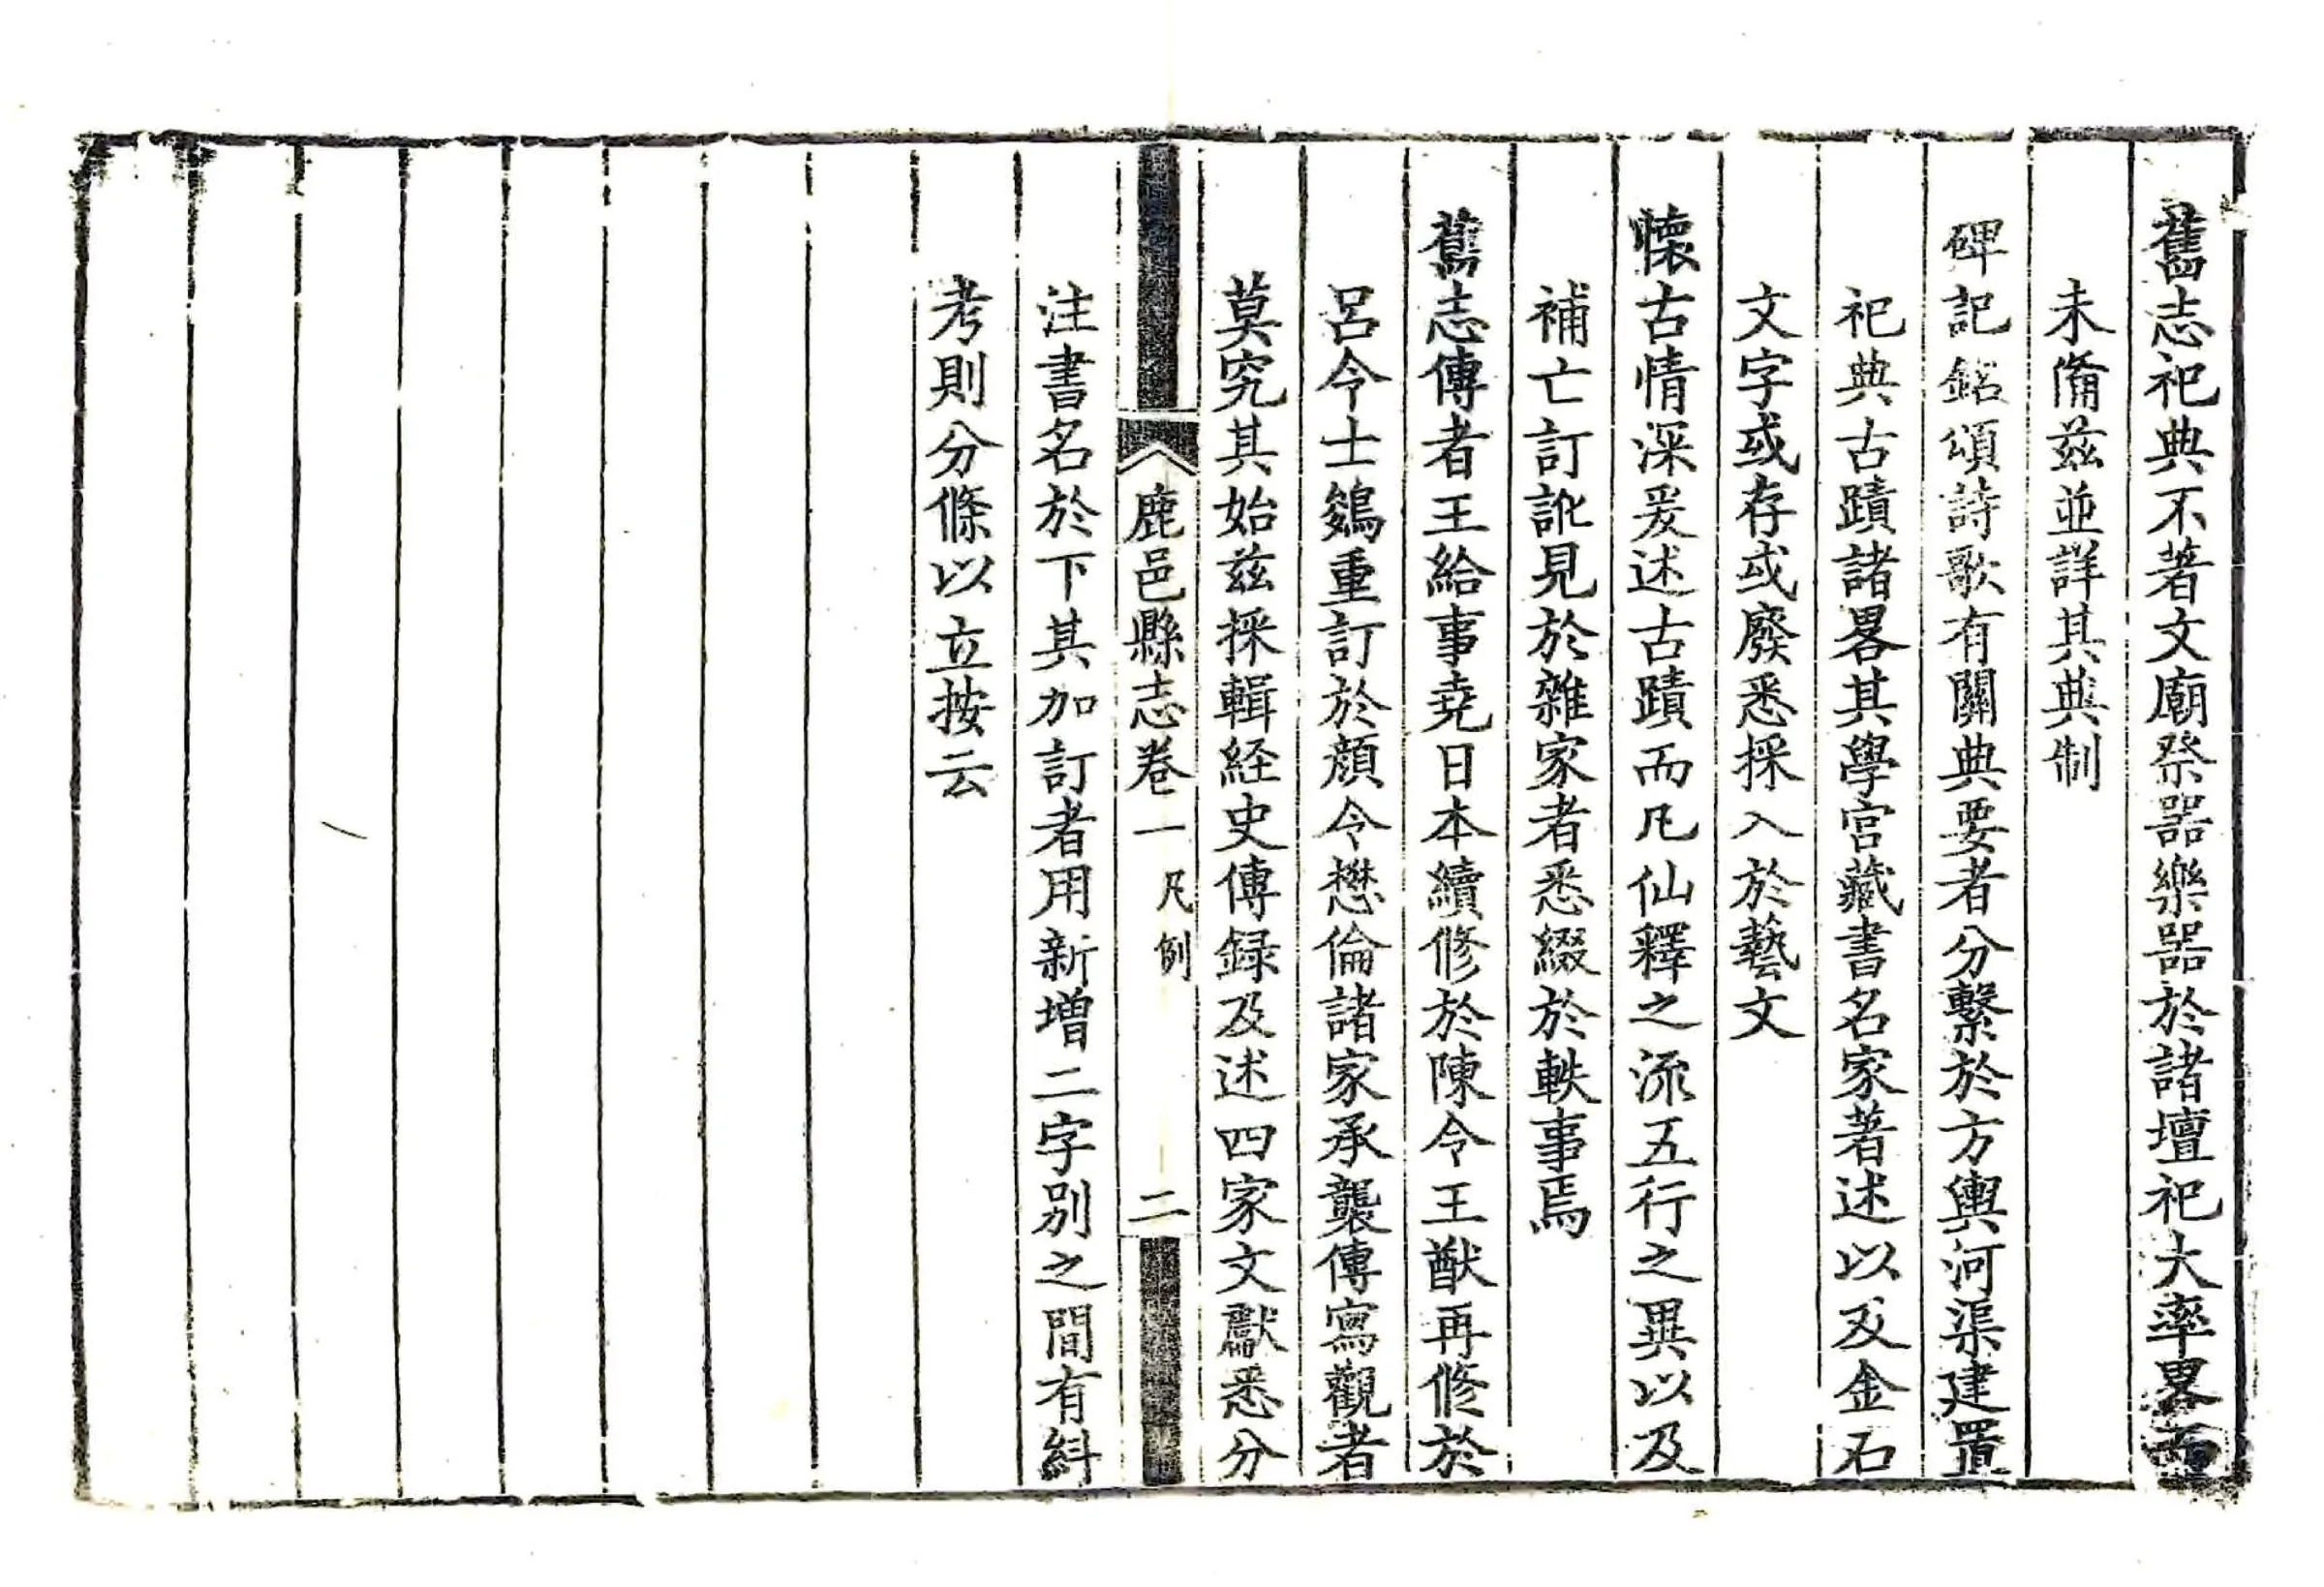 舊志祀典不著文廟祭器樂器於諸壇祀大率畧而
未備茲並詳其典制
碑記銘頌詩歌有關典要者分繫於方輿河渠建置
祀典古蹟諸畧其學宮藏書名家著述以及金石
文字或存或廢悉採入於藝文
懷古情深爰述古蹟而凡仙釋之流五行之異以及
補亡訂訛見於雜家者悉綴於軼事焉
舊志傳者王給事堯日本續修於陳令王猷再修於
呂令士鵕重訂於顏令懋倫諸家承襲傳寫觀者
莫究其始茲採輯經史傳録及述四家文獻悉分
鹿邑縣志卷一 凡例 二
注書名於下其加訂者用新增二字別之間有糾
考則分條以立按云